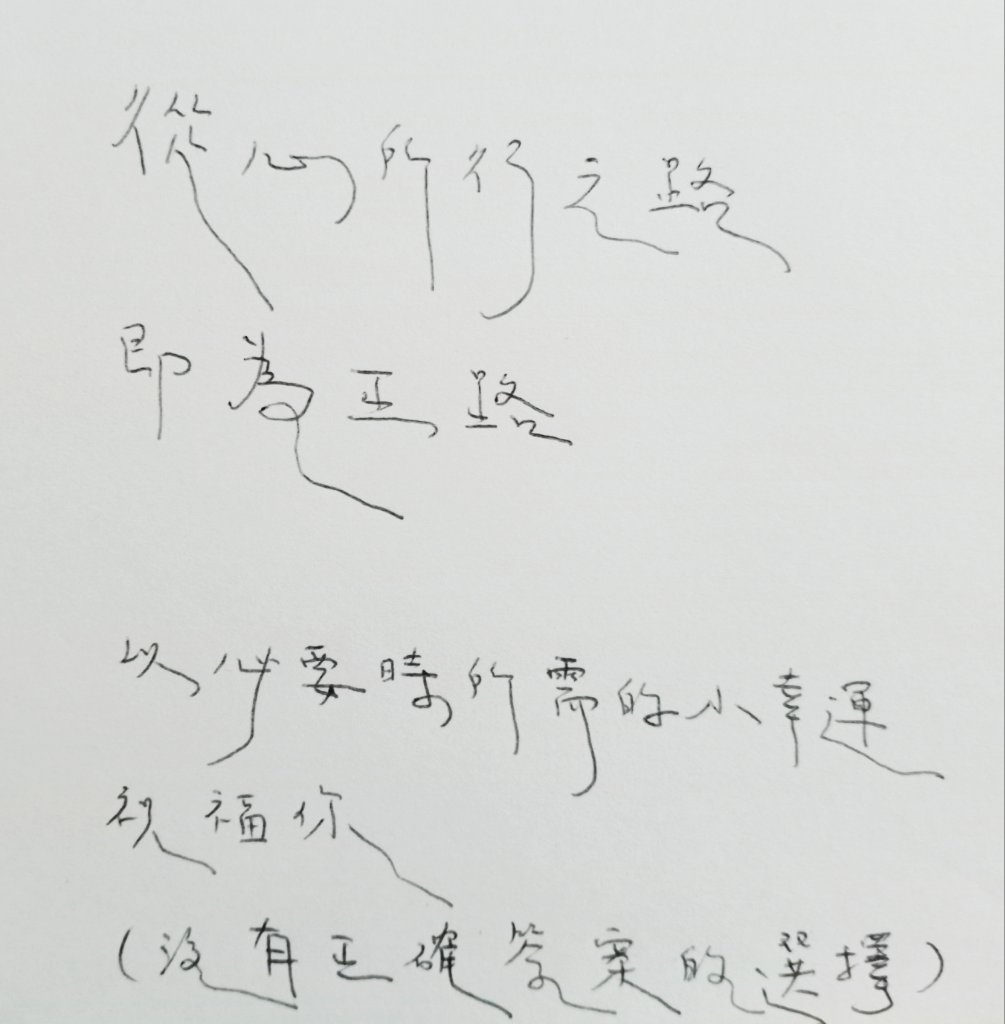 從心所行之路
即為正路
以必要時所需的小幸運
祝福你
(沒有正確答案的選擇)